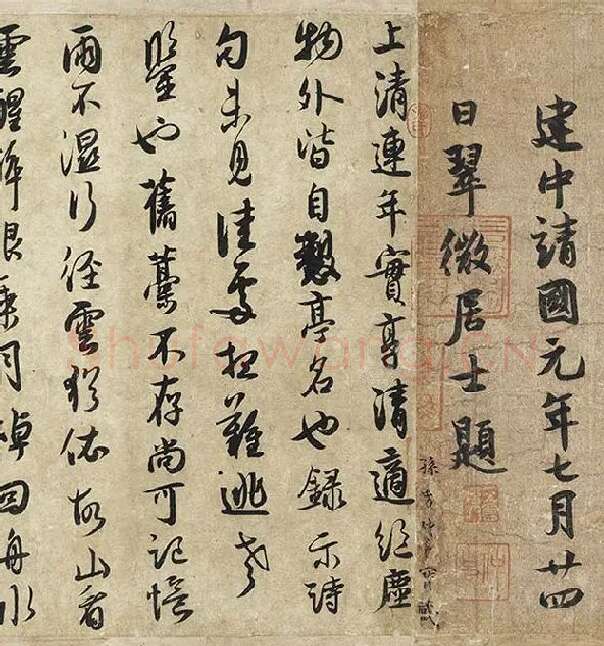 建中請國元年七月廿四
日翠微居士題
上清連年實享清適絕塵
物外皆自亭名也錄示詩
句未見佳處想難逃老
鑒也舊藁不存尚可記憶
雨不濕行徑雲猶依故山看
雲醒醉眼乘月棹回舟水